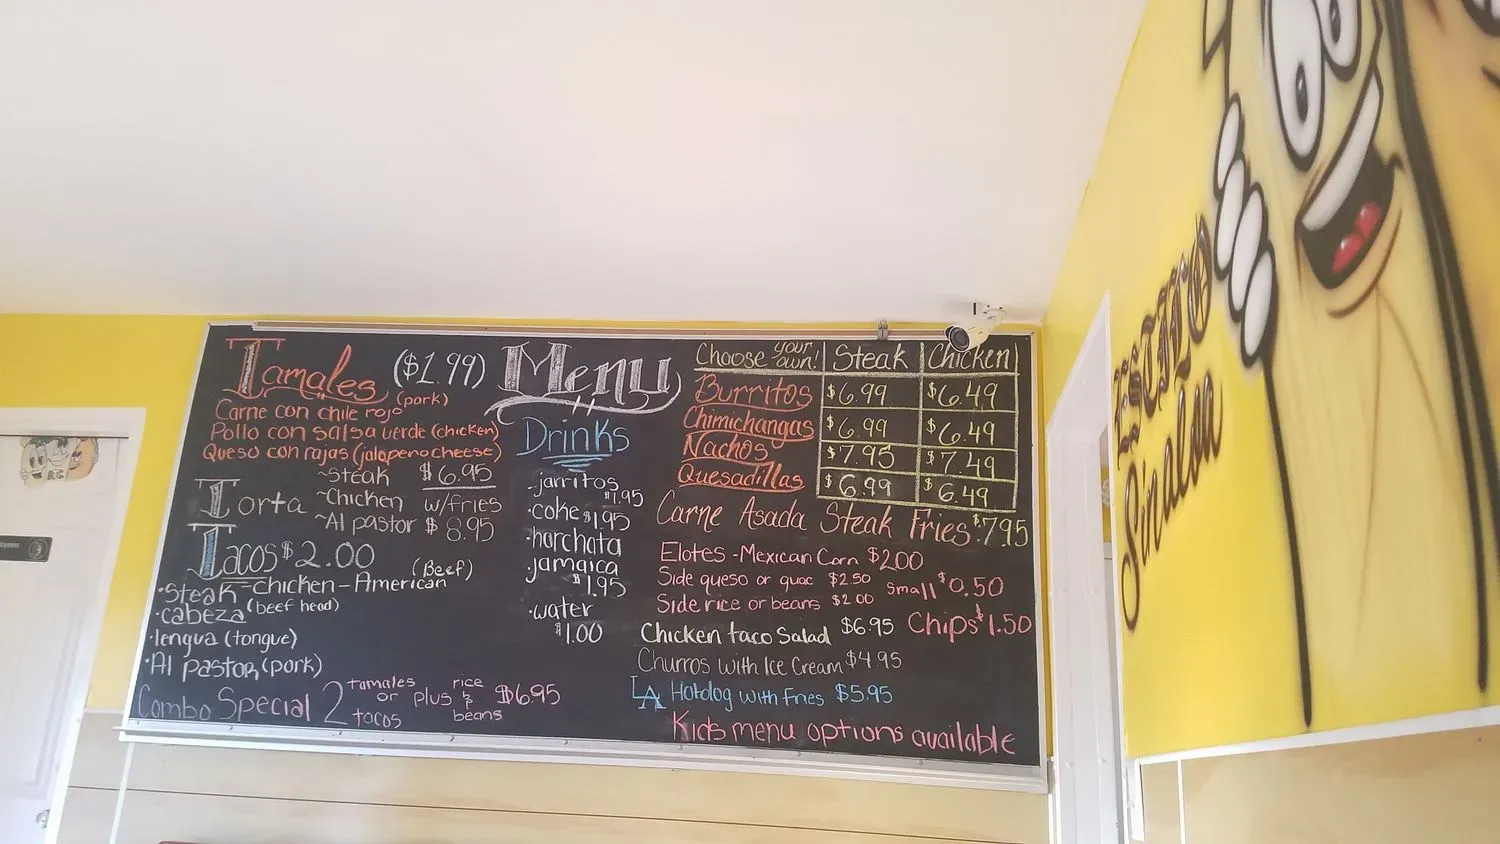 Tamales ($1.99)
Carne con chile rojo (pork)
Pollo con salsa verde (chicken)
Queso con rajas (jalapeno cheese)
Torta
~Steak $6.95
~Chicken w/fries
~Al pastor $8.95
Tacos $2.00
·Steak -Chicken -American (Beef)
·cabeza (beef head)
·lengua (tongue)
·Al pastor (pork)
Combo Special 2 tamales or tacos plus rice & beans $6.95
Menu
Drinks
·jarritos $1.95
·coke $1.95
·horchata
·jamaica $1.95
·water $1.00
Choose your own! Steak Chicken
Burritos $6.99 $6.49
Chimichangas $6.99 $6.49
Nachos $7.95 $7.49
Quesadillas $6.99 $6.49
Carne Asada Steak Fries $7.95
Elotes - Mexican Corn $2.00
Side queso or guac $2.50 small $0.50
Side rice or beans $2.00
Chips $1.50
Chicken taco Salad $6.95
Churros with Ice Cream $4.95
LA Hotdog with Fries $5.95
Kids menu options available
ESTILO
Sinaloa